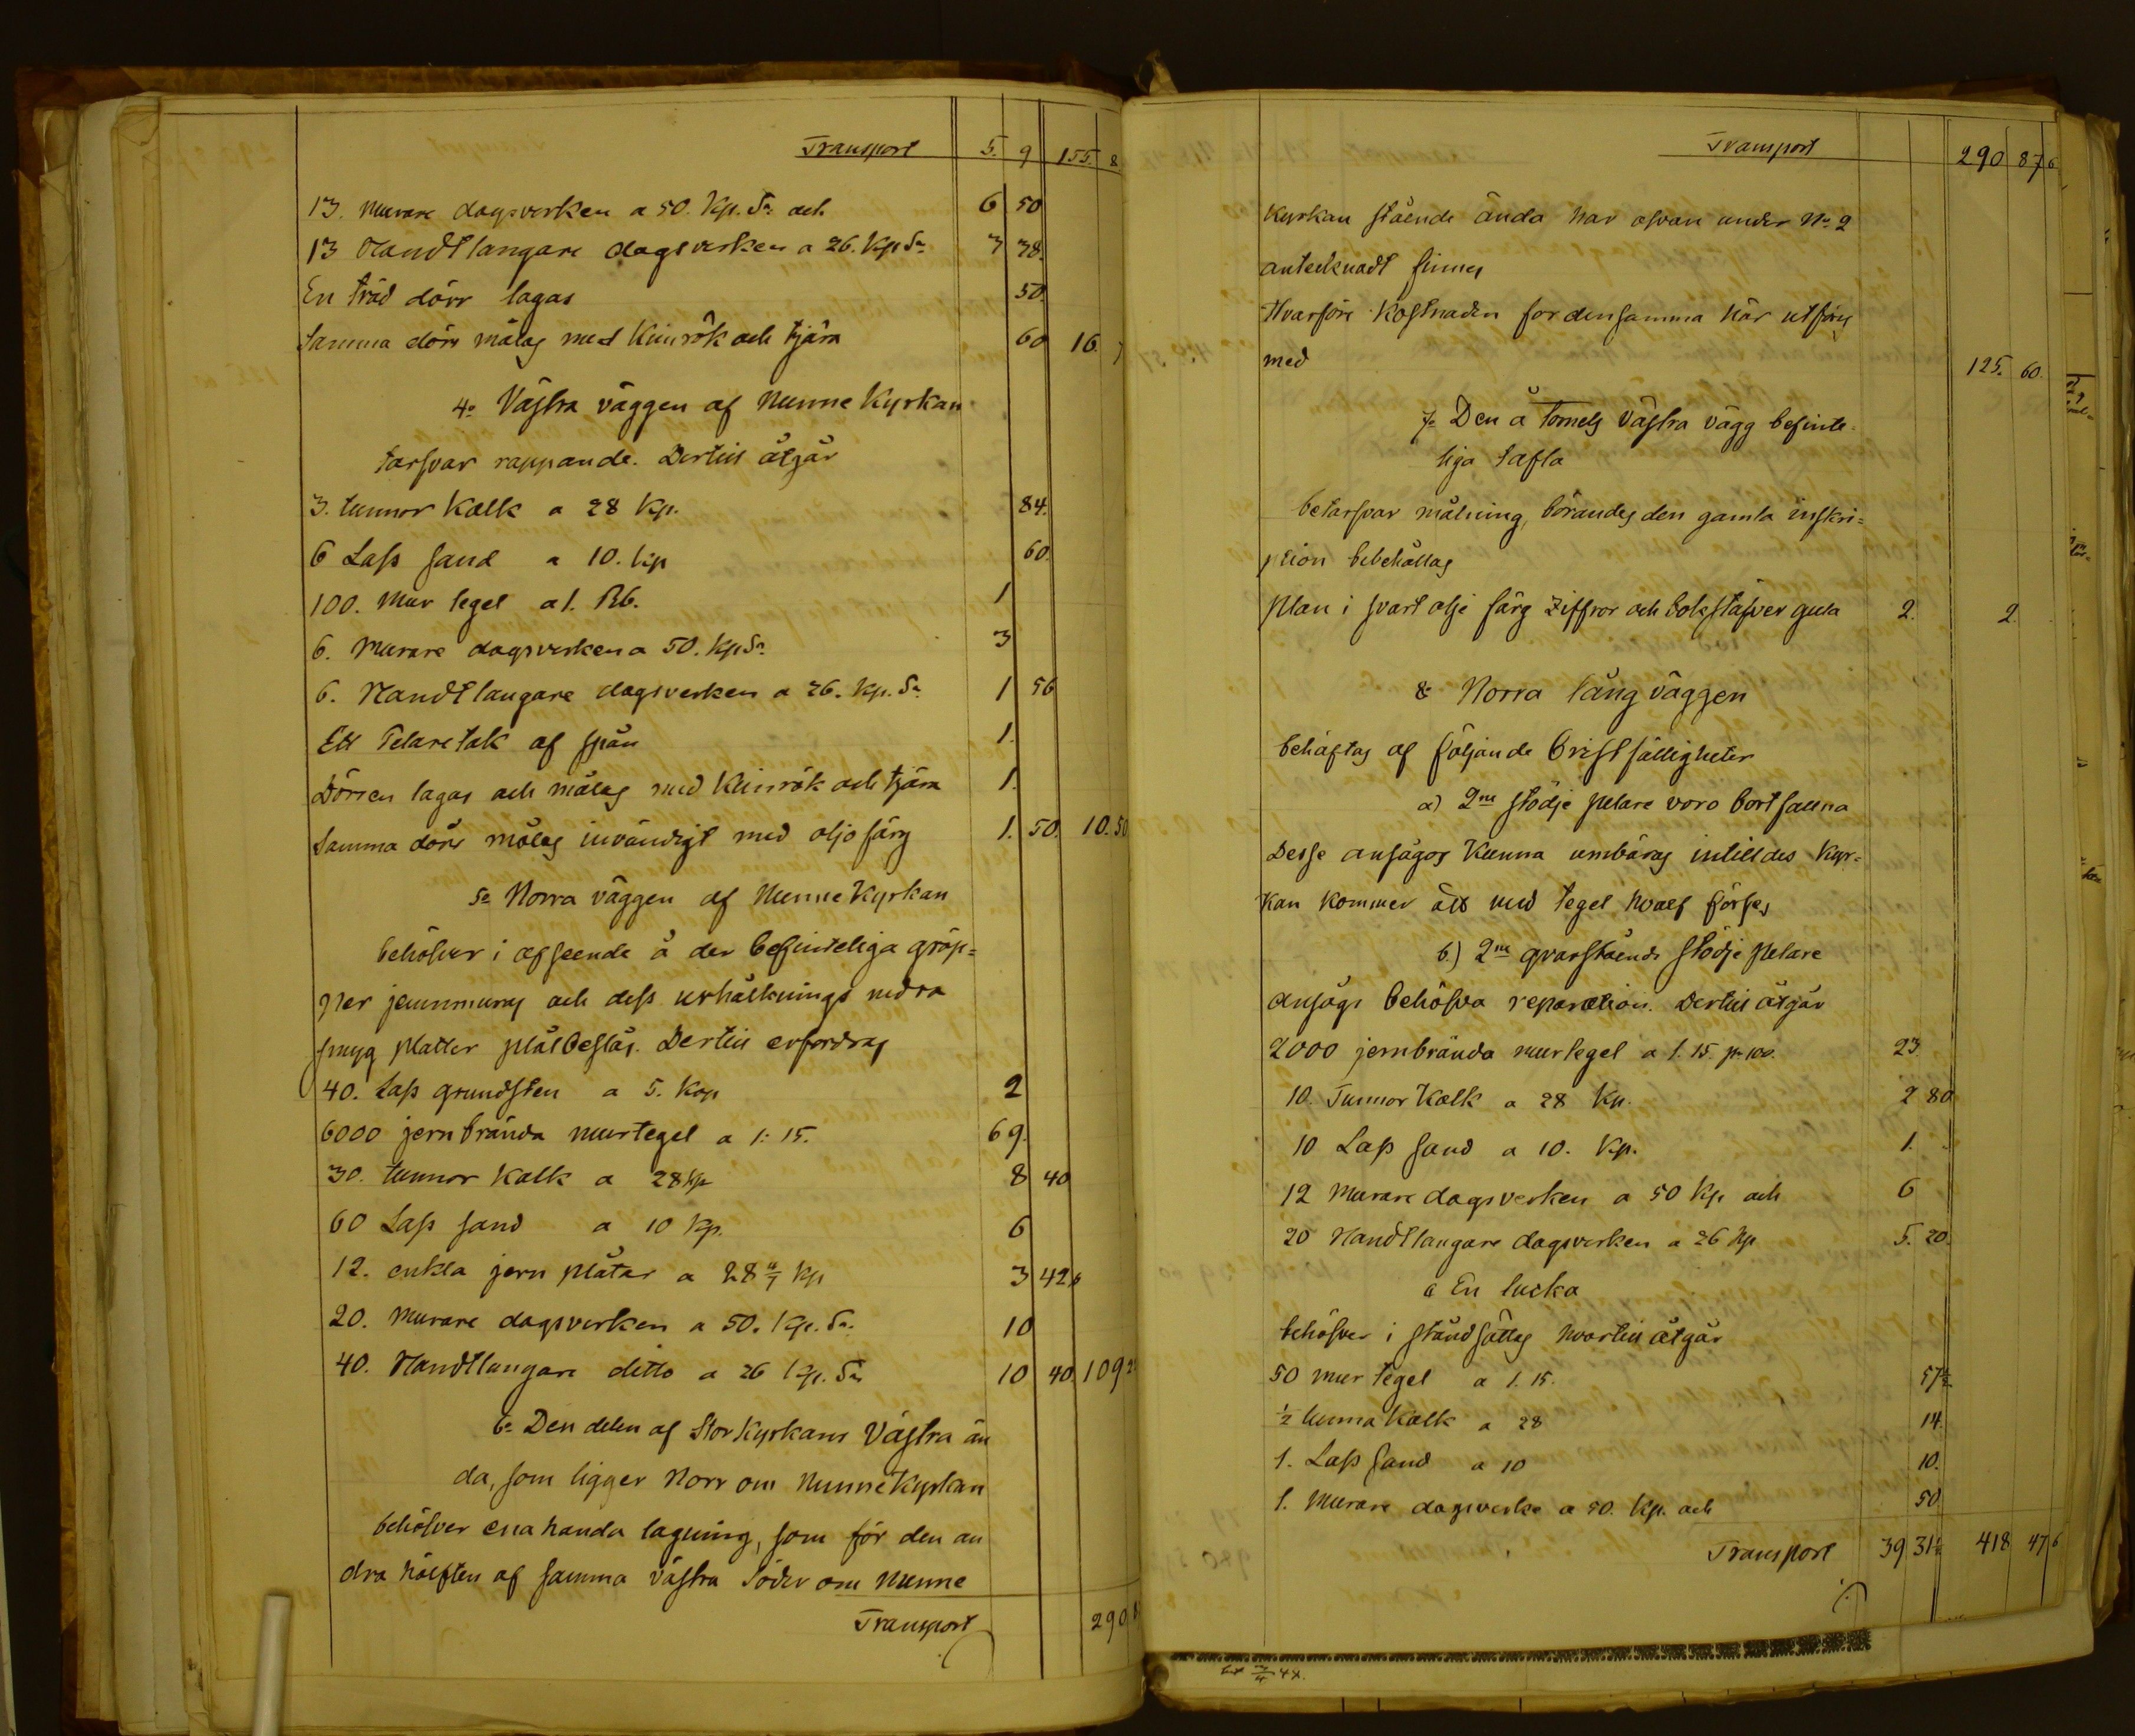 Transport 5. 9 155. 8
13. Murare dagsverken a 50. Kp. Sr och 6 50
13 Handtlangare dagsverken a 26. Kp Sr 3 38.
En träd dörr lagas 50.
Samma dörr målas med Kimrök och tjära 60 16.
4o Västra väggen af Nunne Kyrkan
tarfvar rappande. Dertill åtgår
3. tunnor Kalk a 28 Kp. 84.
6 Lass sand a 10. kp 60.
100. Mur tegel a 1. Rb. 1
6. Murare dagsverken a 50. Kp Sr 3
6. Handtlangare dagsverken a 26. Kp. Sr 1 56
Ett Pelare tak af spån 1.
Dörren lagas och målas med Kimrök och tjära 1.
Samma dörr målas invändigt med oljo färg 1. 50. 10. 50
5o Norra väggen af Nunne Kyrkan
behöfver i afseende å der befinteliga gröp=
per jemnmuras och dess urhålknings nedra
smyg platter plåtbeslås. Dertill erfordras
40. Lass grundsten a 5. Kop 2
6000 jernbrända murtegel a 1: 15. 69.
30. tunnor Kalk a 28 kp 8 40
60 Lass sand a 10 Kp. 6
12. enkla jern plåtar a 28 4/7 Kp 3 42 6
20. Murare dagsverken a 50. Kp. Sr. 10
40. Handtlangare ditto a 26 Kp. Sr 10 40. 109 2
6o Den delen af Stor Kyrkans Västra än
da, som ligger Norr om Nunne Kyrkan
behöfver enahanda lagning, som för den an
dra hälften af samma västra söder om Nunne
Transport 290
Transport 290 87 6
Kyrkan stående ända har ofvan under No 2
antecknadt finnes
Hvarföre Kostnaden för densamma här utföres
med 125. 60.
7o Den å tornets Västra vägg befinte
liga tafla
betarfvar målning, börandes den gamla inskri=
ption bebehållas
Plan i svart olje färg Ziffror och bokstäfver gula 2. 2.
8o Norra lång väggen
behäftas af följande bristfälligheter
a) 2ne stödje pelare voro bortfallna
Desse ansågos Kunna umbäras intill des Kyr=
kan kommer att med tegel hvalf förses
b.) 2ne qvarstående Stödje Pelare
ansågs behöfva reparation. Dertill åtgår
2000 jernbrända murtegel a 1. 15. pr 100. 23
10. Tunnor Kalk a 28 Kp. 2 80
10 Lass sand a 10. Kp. 1.
12 Murare dagsverken a 50 Kp och 6
20 Handtlangare dagsverken a 26 Kp 5. 20.
c En lucka
behöfver i ståndsättas hvartill åtgår
50 mur tegel a 1. 15. 57 1/2
1/2 tunna Kalk a 28 14.
1. Lass sand a 10 10.
1. Murare dagsverke a 50. Kp. och 50
Transport 39 31 1/2 418 47 6